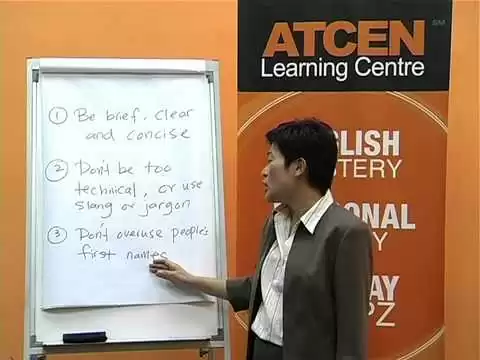 ① Be brief, clear
and concise
② Don't be too
technical, or use
slang or jargon
③ Don't overuse people's
first names
ATCEN SM
Learning Centre
GLISH
TERY
ONAL
Y
AY
PZ